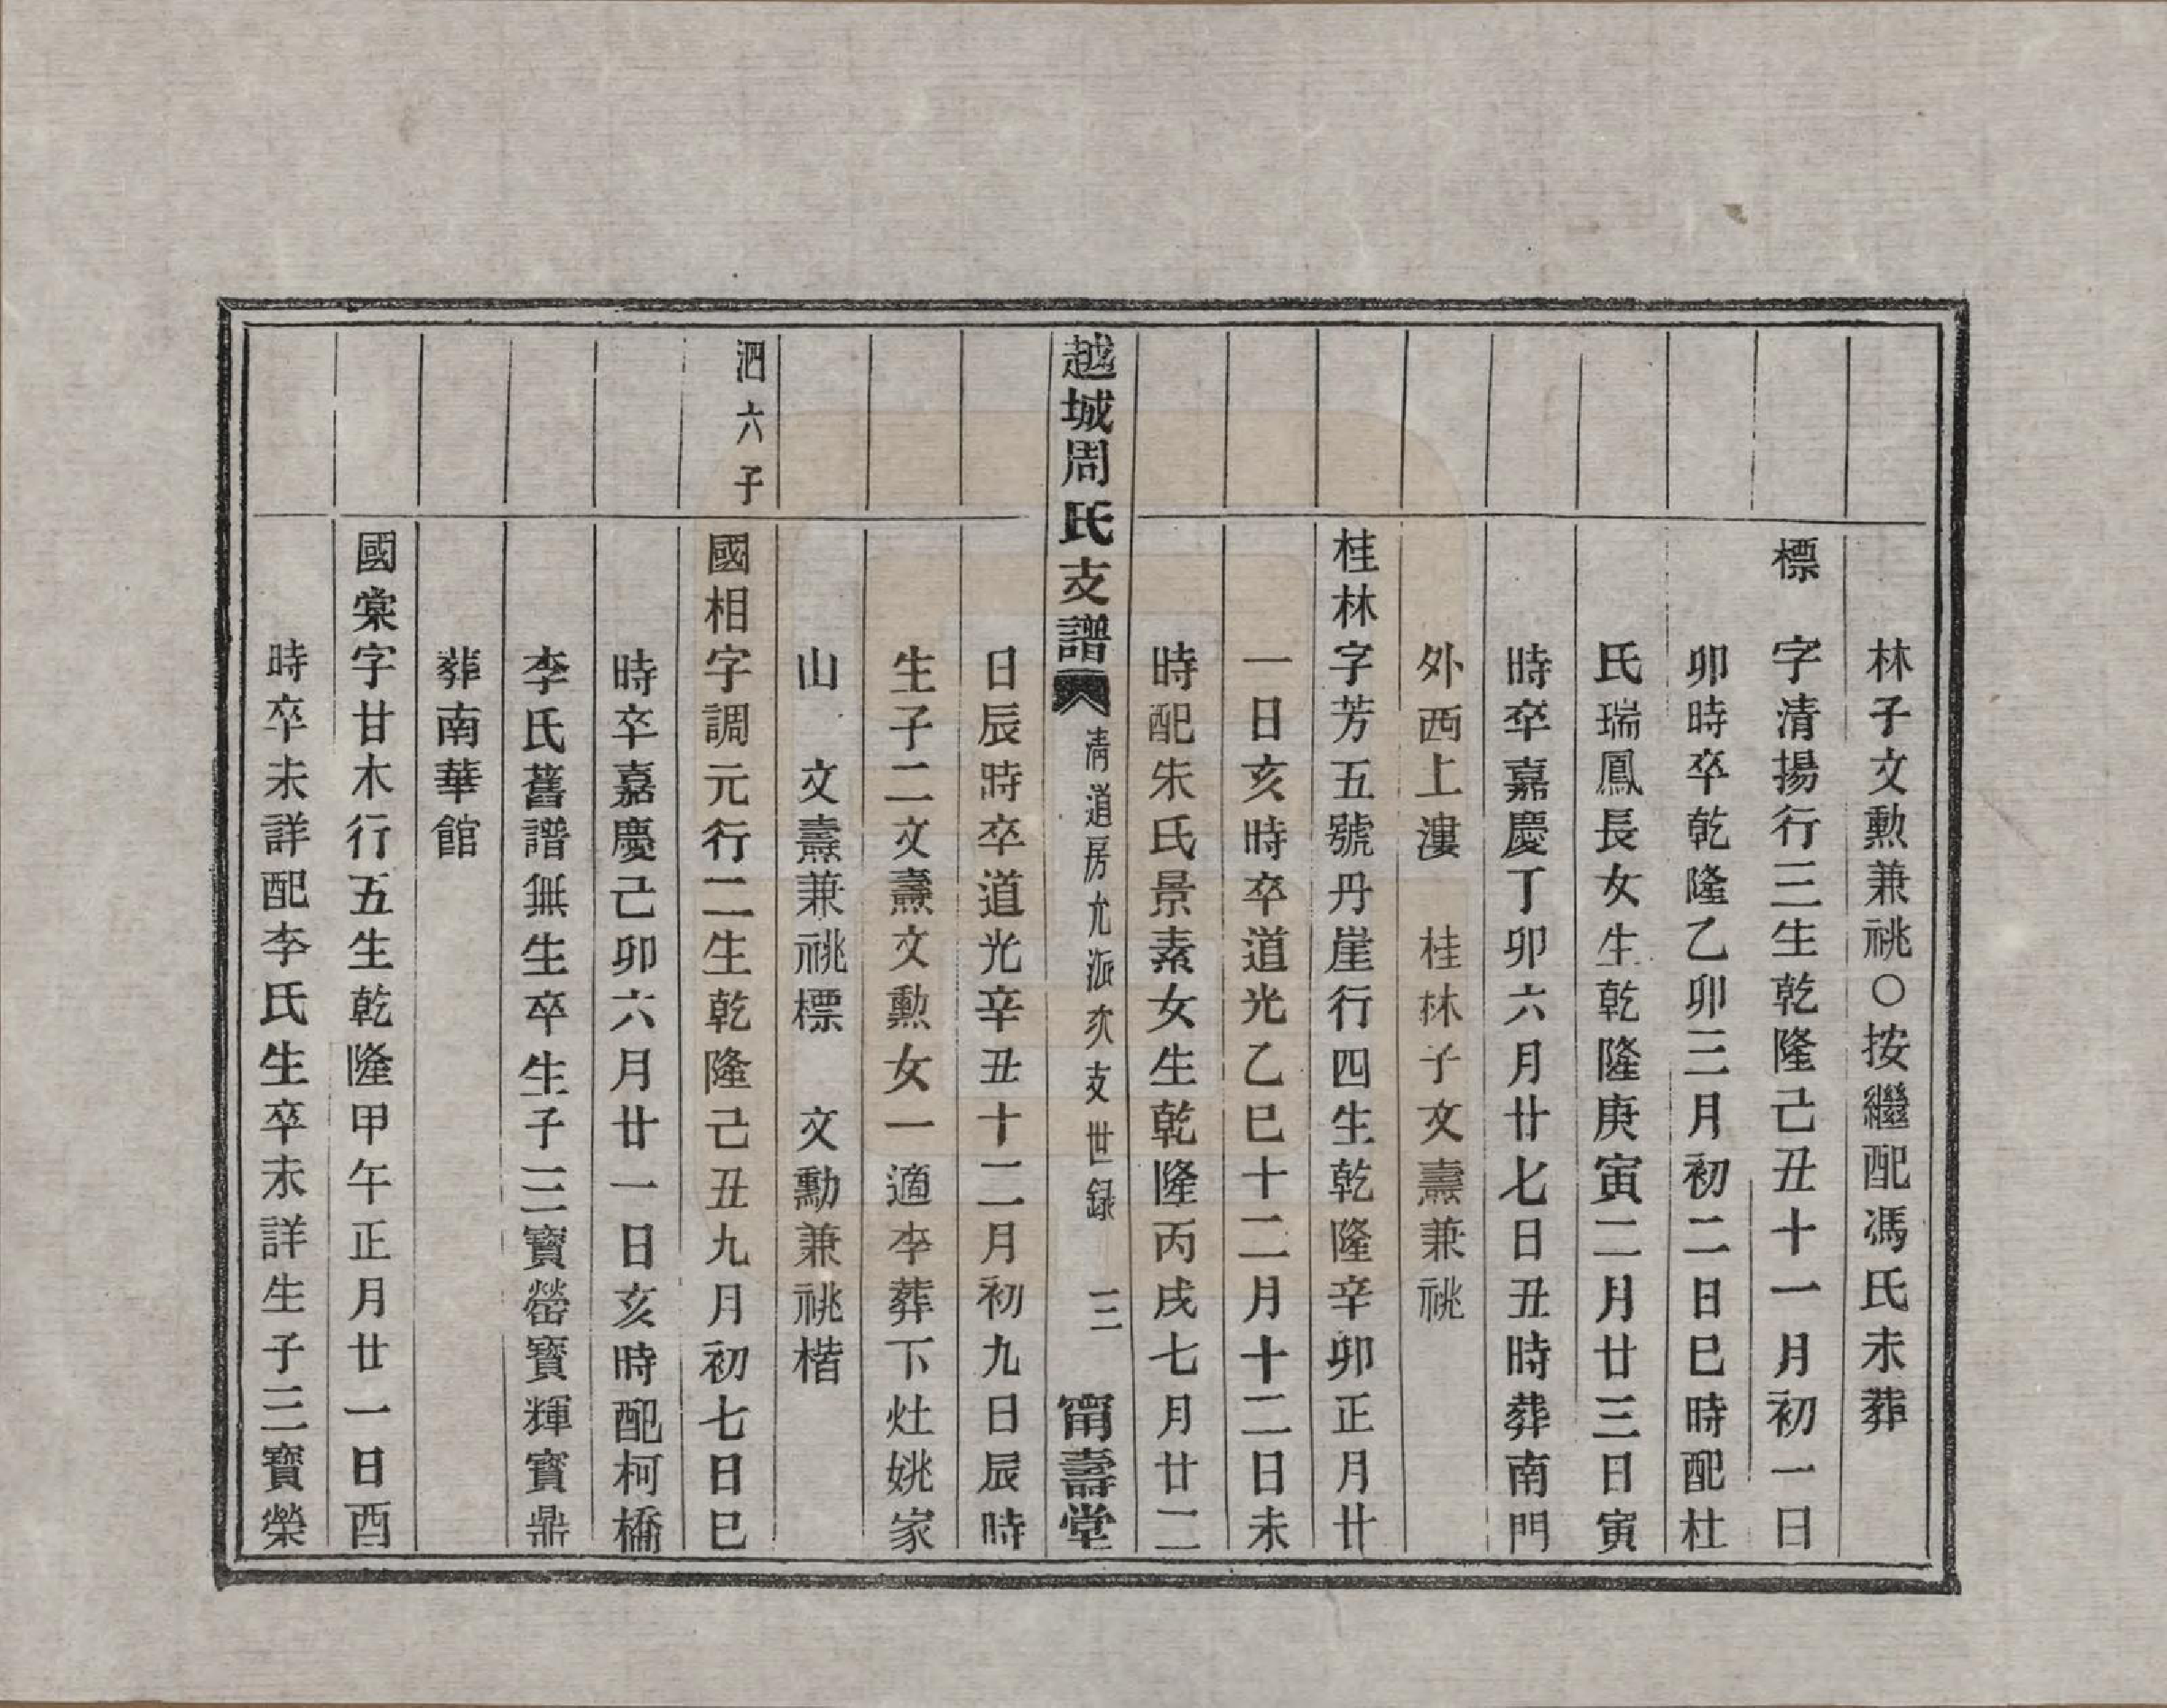 林子文勲兼祧○按繼配馮氏未葬
標　字清揚行三生乾隆己丑十一月初一日
卯時卒乾隆乙卯三月初二日巳時配杜
氏瑞鳳長女生乾隆庚寅二月廿三日寅
時卒嘉慶丁卯六月廿七日丑時葬南門
外西上漊　桂林子文燾兼祧
桂林字芳五號丹崖行四生乾隆辛卯正月廿
一日亥時卒道光乙巳十二月十二日未
時配朱氏景素女生乾隆丙戌七月廿二
越城周氏支譜　清道房允派次支世録　三　甯壽堂
日辰時卒道光辛丑十二月初九日辰時
生子二文燾文勲女一適李葬下灶姚家
山　文燾兼祧標　文勳兼祧楷
泗六子　國相字調元行二生乾隆己丑九月初七日巳
時卒嘉慶己卯六月廿一日亥時配柯橋
李氏舊譜無生卒生子三寶罃寶輝寶鼎
葬南華館
國棠字甘木行五生乾隆甲午正月廿一日酉
時卒未詳配李氏生卒未詳生子三寶榮